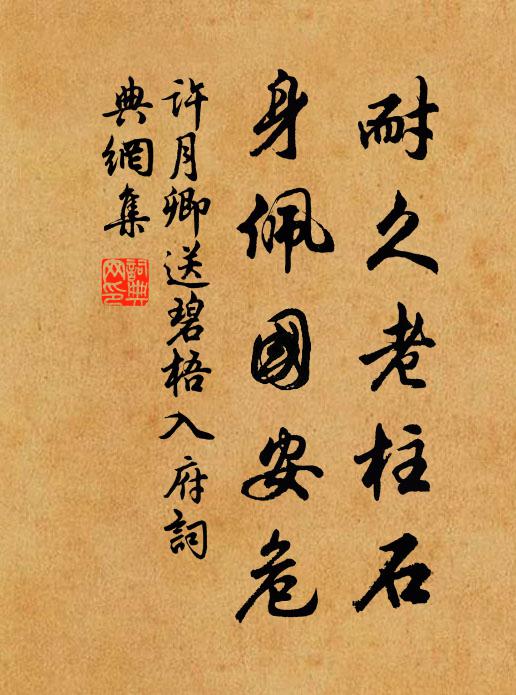 耐久老柱石
身佩國安危
許月卿送碧梧入府詞
典網集
詞典網印